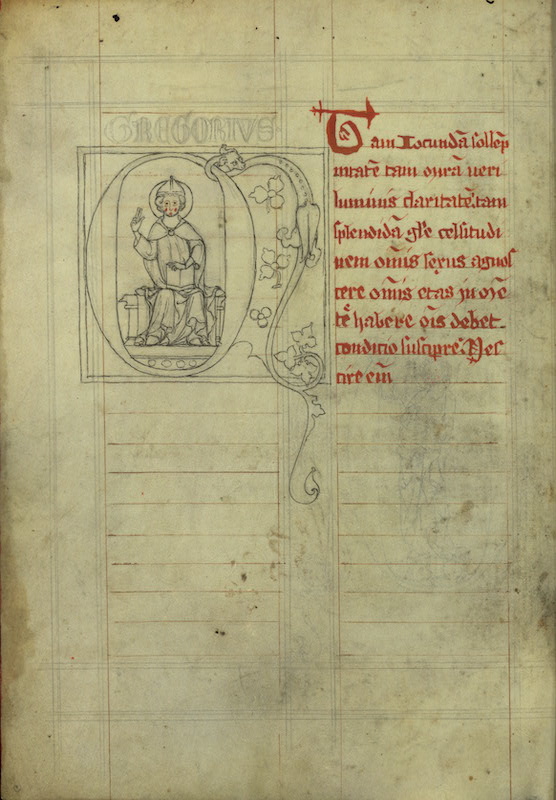 GREGORIVS
Tam Iocundā sollēp
nitatē tam onrā ueri
luminis claritatē. tam
splendidā glē celsitudi
nem om̄is sexus agnos
cere om̄is etas
habere om̄s debet
conditio suscipre. Nes
cire em̄